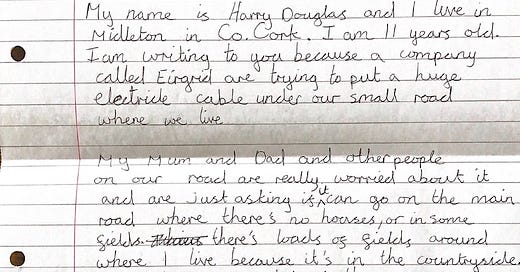 My name is Harry Douglas and I live in
Midleton in Co. Cork. I am 11 years old.
I am writing to you because a company
called Eirgrid are trying to put a huge
electricle cable under our small road
where we live
My Mum and Dad and other people
on our road are really worried about it
and are just asking if it can go on the main
road where there's no houses, or in some
fields. there's loads of fields around
where I live because it's in the countryside